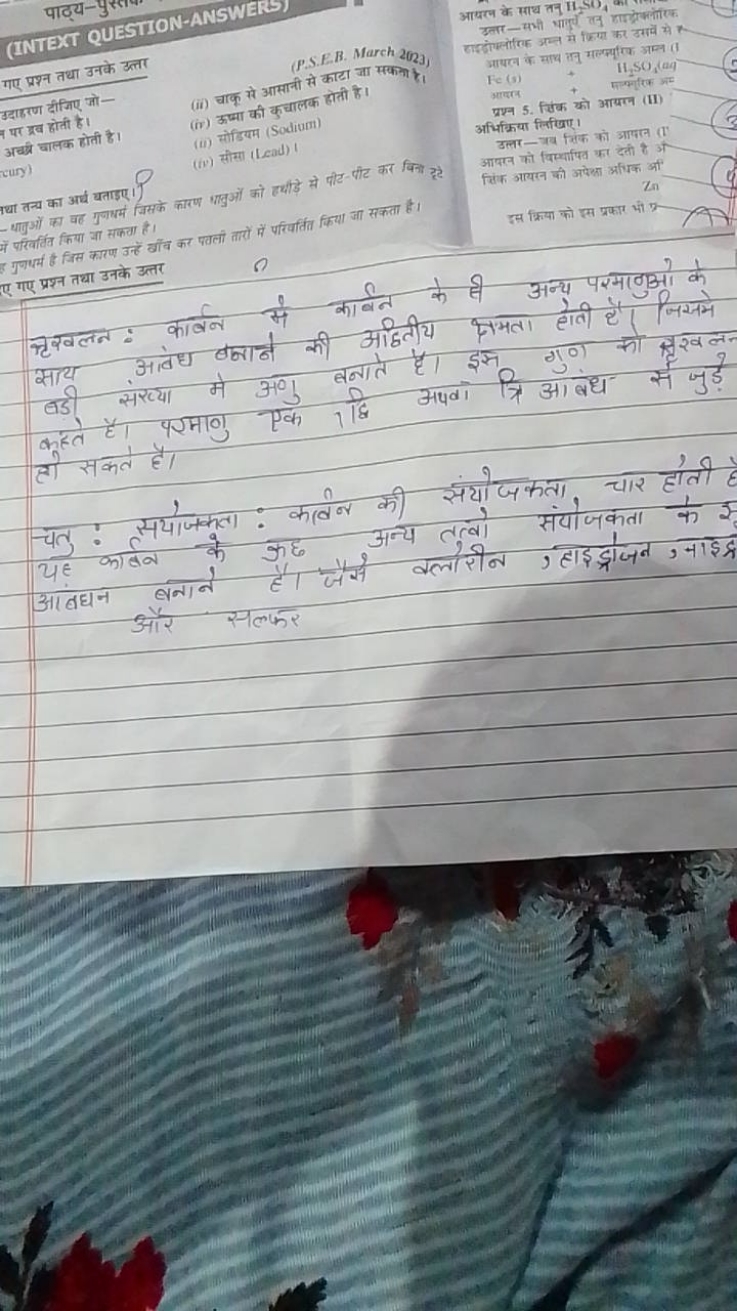 पाठ्य-पुस्तक
(INTEXT QUESTION-ANSWERS)
गए प्रश्न तथा उनके उत्तर
(P.S.E.B. March 2023)
उदाहरण दीजिए जो—
(ii) चाकू से आसानी से काटा जा सकता है।
पर द्रव होती है।
(iv) ऊष्मा की कुचालक होती है।
अच्छी चालक होती है।
(ii) सोडियम (Sodium)
cury)
(iv) सीसा (Lead)।
तथा तन्य का अर्थ बताइए।
—धातुओं का वह गुणधर्म जिसके कारण धातुओं को हथौड़े से पीट-पीट कर बिना टूटे
में परिवर्तित किया जा सकता है।
गुणधर्म है जिस कारण उन्हें खींच कर पतली तारों में परिवर्तित किया जा सकता है।
ए गए प्रश्न तथा उनके उत्तर
आयरन के साथ तनु H₂SO₄
उत्तर—सभी धातुएँ तनु हाइड्रोक्लोरिक
हाइड्रोक्लोरिक अम्ल से क्रिया कर
आयरन के साथ तनु सल्फ्यूरिक अम्ल
Fe (s) + H₂SO₄(aq
आयरन + सल्फ्यूरिक
प्रश्न 5. जिंक को आयरन (II)
अभिक्रिया लिखिए।
उत्तर—जब जिंक को आयरन
आयरन को विस्थापित कर देती है
जिंक आयरन की अपेक्षा अधिक
Zn
इस क्रिया को इस प्रकार भी
श्रृखलन : कार्बन में कार्बन के ही अन्य परमाणुओ के
साथ आबंध बनाने की अद्वितीय क्षमता होती है। जिसमे
बडी संख्या मे अणु बनाते है। इस गुण को श्रृखलन
कहते है। परमाणु एक , द्वि अथवा त्रि आबंध से जुड़े
हो सकते है।
चतु : सयोजकता : कार्बन की संयोजकता चार होती है
यह कार्बन के कुछ अन्य तत्वो संयोजकता के
आबंधन बनाने है। जैसे क्लोरीन , हाइड्रोजन ,
और सल्फर